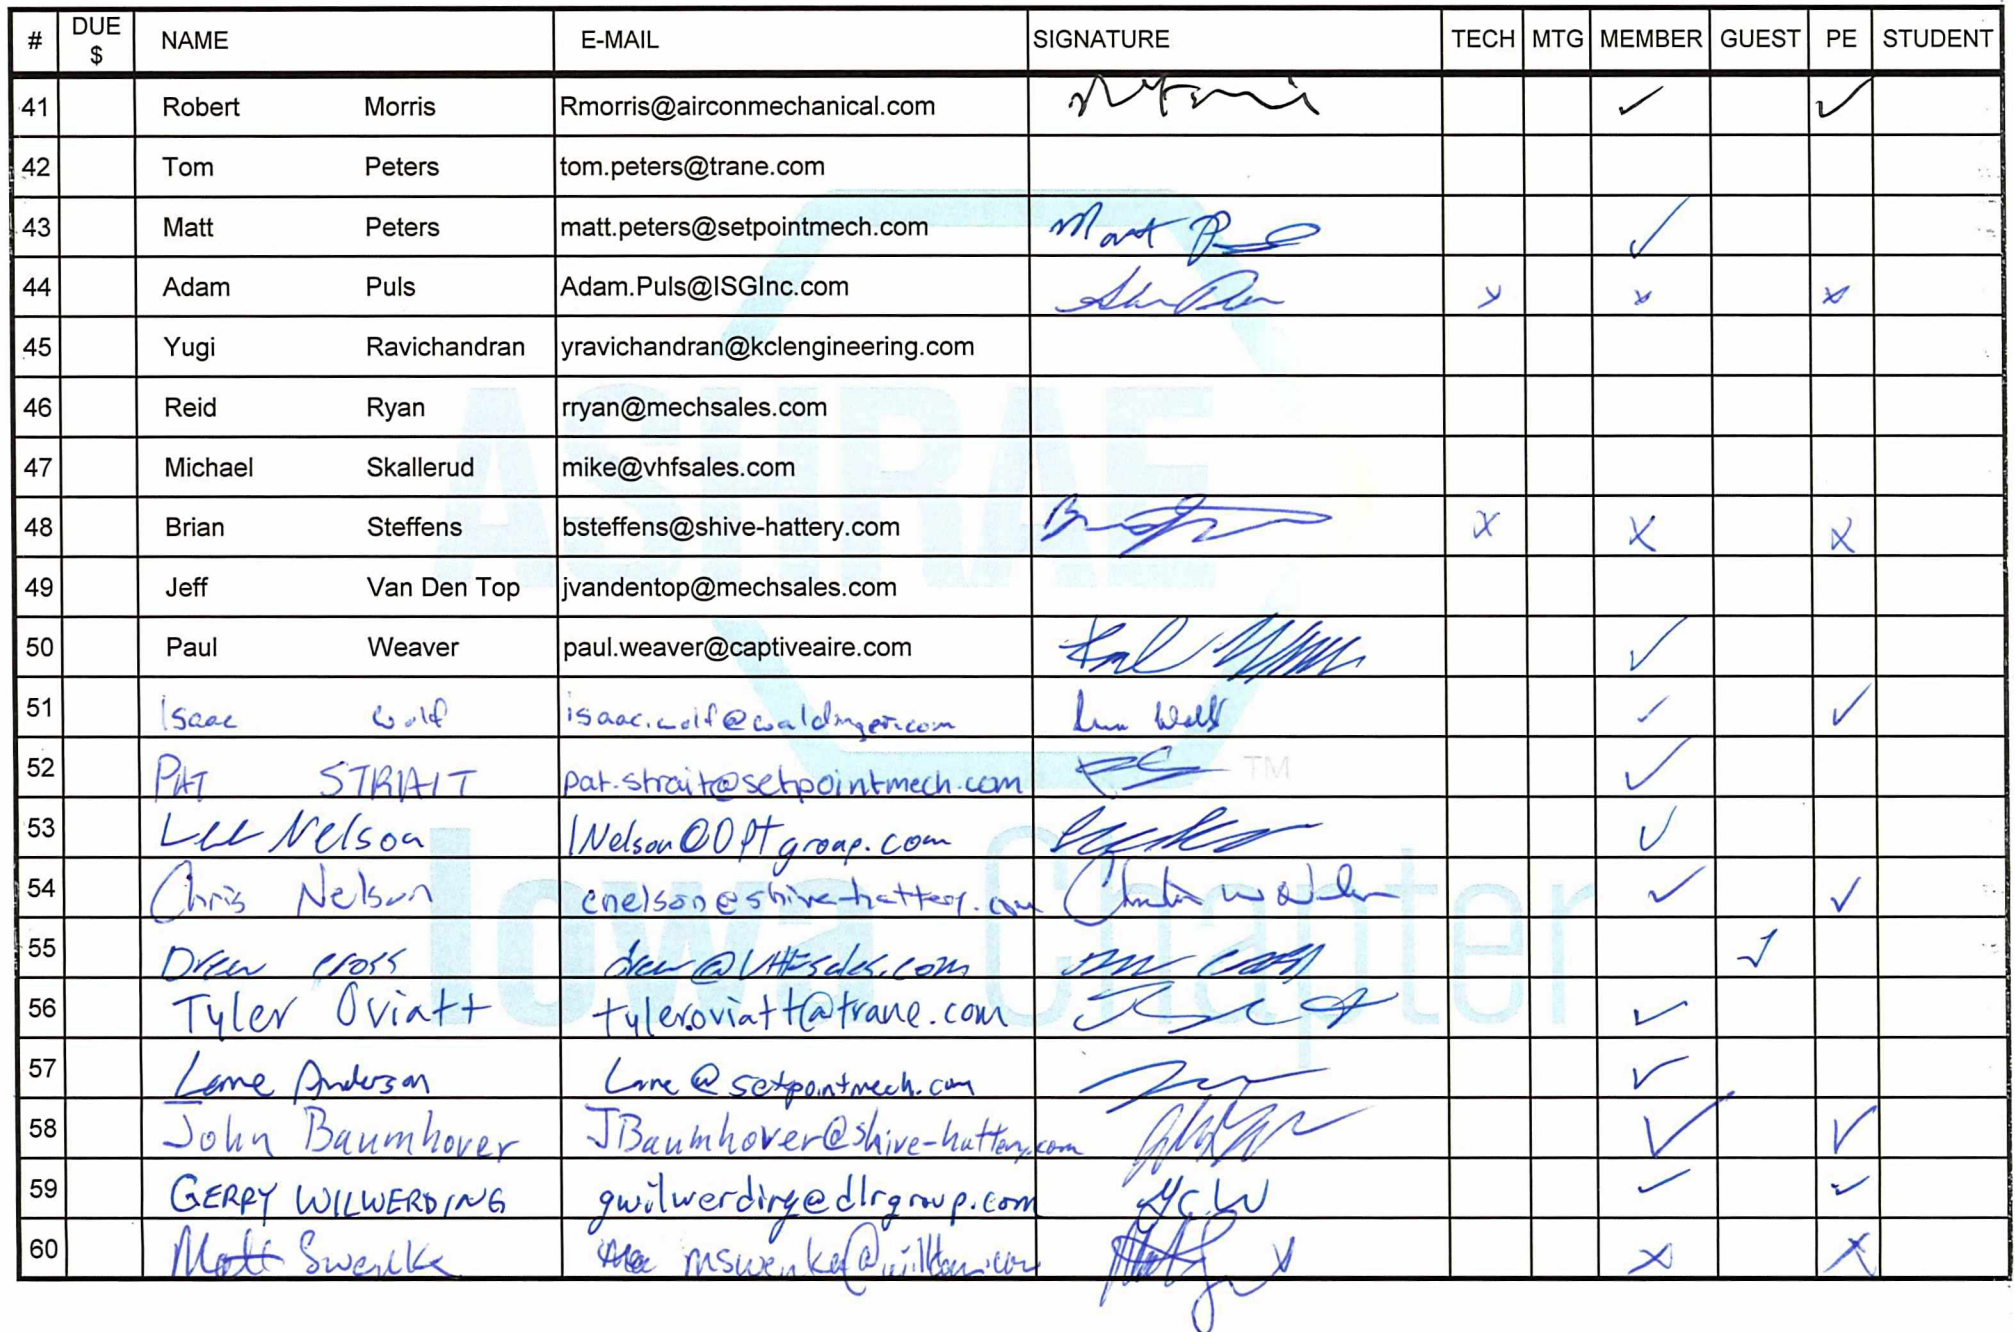 # DUE $ NAME E-MAIL SIGNATURE TECH MTG MEMBER GUEST PE STUDENT
41 Robert Morris Rmorris@airconmechanical.com ✓ ✓
42 Tom Peters tom.peters@trane.com
43 Matt Peters matt.peters@setpointmech.com ✓
44 Adam Puls Adam.Puls@ISGInc.com x x x
45 Yugi Ravichandran yravichandran@kclengineering.com
46 Reid Ryan rryan@mechsales.com
47 Michael Skallerud mike@vhfsales.com
48 Brian Steffens bsteffens@shive-hattery.com x x x
49 Jeff Van Den Top jvandentop@mechsales.com
50 Paul Weaver paul.weaver@captiveaire.com ✓
51 Isaac Wolf isaac.wolf@waldinger.com ✓ ✓
52 PAT STRAIT pat.strait@setpointmech.com PS ✓
53 Lee Nelson lNelson@OPTgroup.com ✓
54 Chris Nelson cnelson@shive-hattery.com ✓ ✓
55 Drew Cross drew@VHFsales.com ✓
56 Tyler Oviatt tyler.oviatt@trane.com ✓
57 Lane Anderson Lane@setpointmech.com ✓
58 John Baumhover JBaumhover@shive-hattery.com ✓ ✓
59 GERRY WILWERDING gwilwerding@dlrgroup.com GCW ✓ ✓
60 Matt Swenka x x
ASHRAE
TM
Iowa Chapter